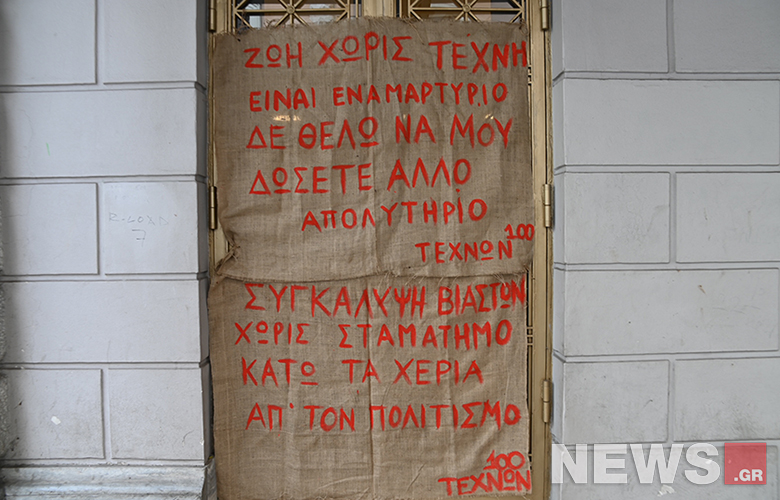 ΖΩΗ ΧΩΡΙΣ ΤΕΧΝΗ
ΕΙΝΑΙ ΕΝΑ ΜΑΡΤΥΡΙΟ
ΔΕ ΘΕΛΩ ΝΑ ΜΟΥ
ΔΩΣΕΤΕ ΑΛΛΟ
ΑΠΟΛΥΤΗΡΙΟ
100
ΤΕΧΝΩΝ
ΣΥΓΚΑΛΥΨΗ ΒΙΑΣΤΩΝ
ΧΩΡΙΣ ΣΤΑΜΑΤΗΜΟ
ΚΑΤΩ ΤΑ ΧΕΡΙΑ
ΑΠ' ΤΟΝ ΠΟΛΙΤΙΣΜΟ
100
ΤΕΧΝΩΝ
NEWS.GR